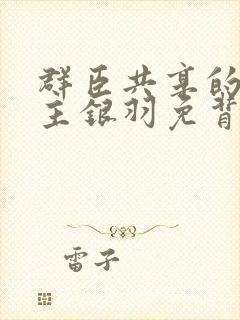 群臣共享的
主银羽免背
雷子